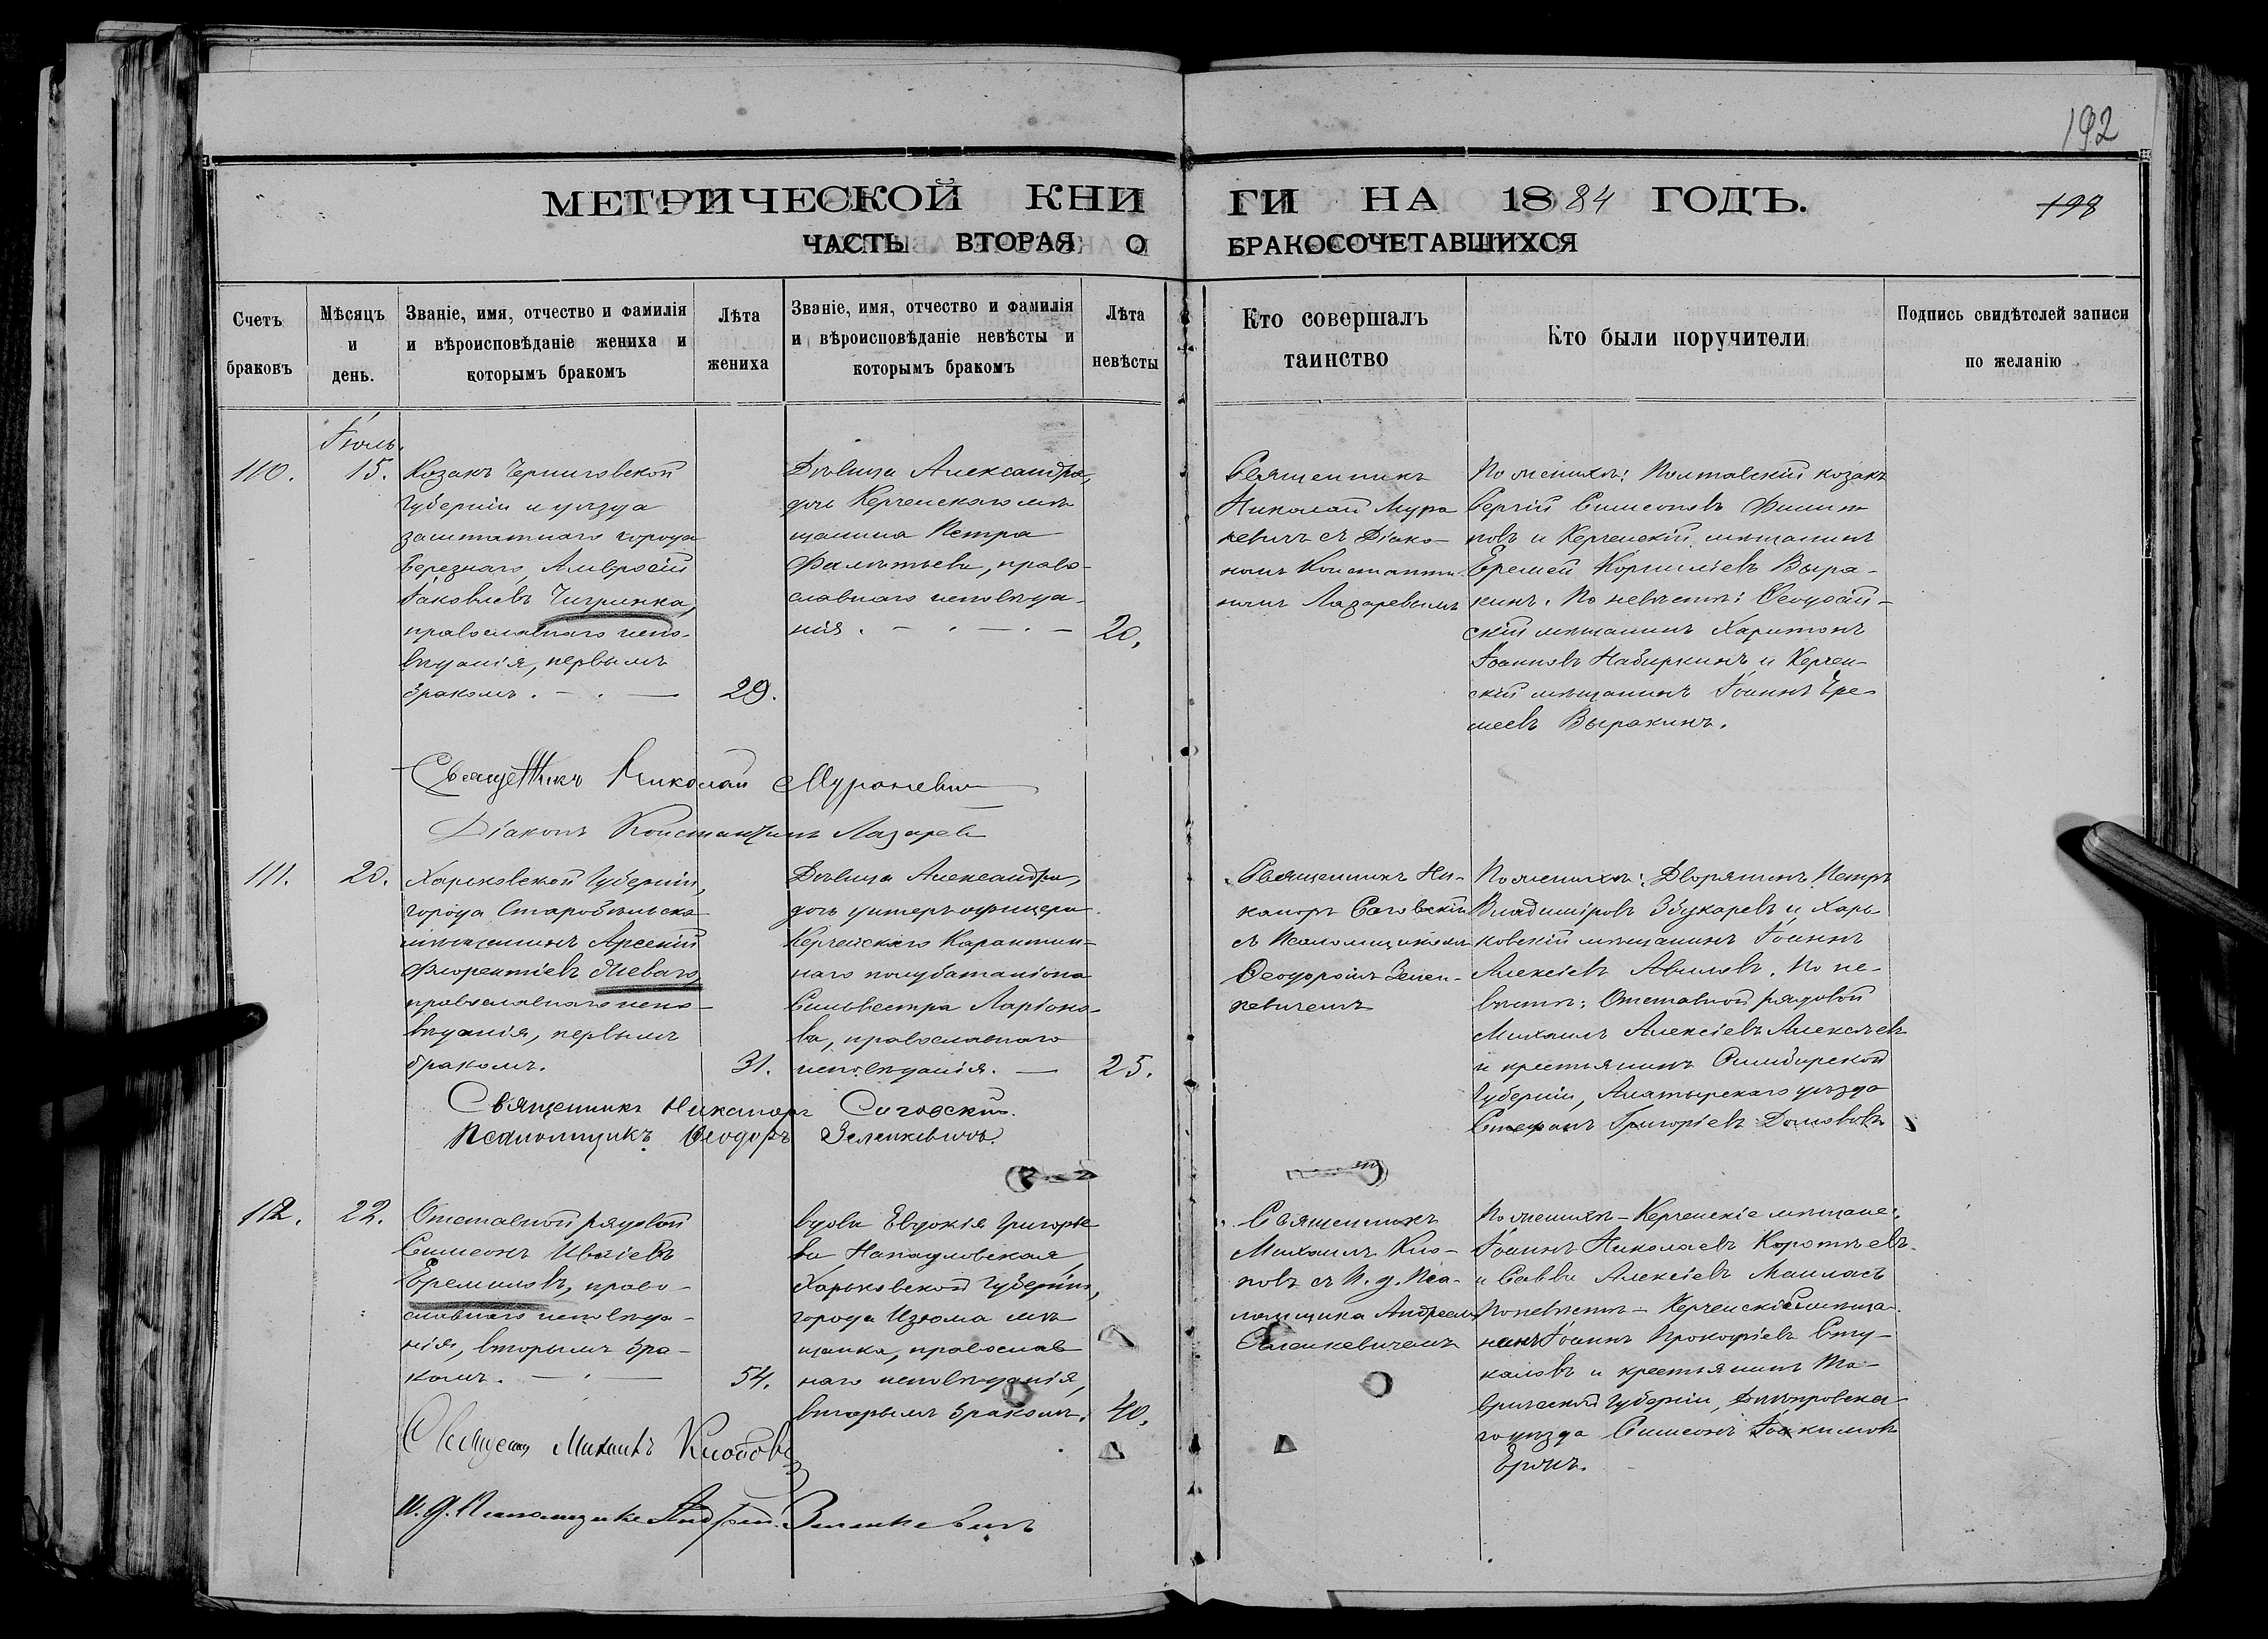 192
МЕТРИЧЕСКОЙ КНИ ГИ НА 1884 ГОДЪ.
198
ЧАСТЬ ВТОРАЯ О БРАКОСОЧЕТАВШИХСЯ
Счетъ
браковъ
Мѣсяцъ
и
день.
Званіе, имя, отчество и фамилія
и вѣроисповѣданіе жениха и
которымъ бракомъ
Лѣта
жениха
Званіе, имя, отчество и фамилія
и вѣроисповѣданіе невѣсты и
которымъ бракомъ
Лѣта
невѣсты
Кто совершалъ
таинство
Кто были поручители
Подпись свидѣтелей записи
по желанію
Іюль.
110.
15.
Козакъ Черниговской
Губерніи и уѣзда
заштатнаго города
Березнаго, Амвросій
Іаковлевъ Чигринка,
православнаго испо-
вѣданія, первымъ
бракомъ.
29.
Дѣвица Александра,
дочь Керченскаго мѣ
щанина Петра
, право-
славнаго исповѣда-
нія.
20.
Священникъ
Николай Мура
кевичъ съ Діако-
номъ Константи-
номъ Лазаревымъ
По женихѣ: Полтавскій козакъ
Сергій Симеоновъ Филип
повъ и Керченскій мѣщанинъ
Еремей Корниліевъ Выра-
кинъ. По невѣстѣ: Ѳеодосій-
скій мѣщанинъ Харитонъ
Іоанновъ Набиркинъ и Керчен-
скій мѣщанинъ Іоаннъ Ере-
меевъ Выракинъ.
Священникъ Николай Муракевичъ
Діаконъ Константинъ Лазаревъ
111.
20.
Харьковской Губерніи,
города Старобѣльска
мѣщанинъ Арсеній
Флорентіевъ
православнаго испо-
вѣданія, первымъ
бракомъ.
31.
Дѣвица Александра,
дочь унтеръ-офицера
Керченскаго Карантин-
наго полубаталіона
Сильвестра Ларіоно-
ва, православнаго
исповѣданія.
25.
Священникъ Ни-
каноръ Саговскій
съ Псаломщикомъ
Ѳеодоромъ Зелен-
кевичемъ
По женихѣ: Дворянинъ Петръ
Владиміровъ Збукаревъ и Харь-
ковскій мѣщанинъ Іоаннъ
Алексіевъ Авиловъ. По не-
вѣстѣ: Отставной рядовой
Михаилъ Алексіевъ Алексѣевъ
и крестьянинъ Симбирской
Губерніи, Алатырскаго уѣзда
Стефанъ Григоріевъ
Священникъ Никаноръ Саговскій.
Псаломщикъ Ѳеодоръ Зеленкевичъ.
112.
22.
Отставной рядовой
Симеонъ
Ефремиловъ, право-
славнаго исповѣда-
нія, вторымъ бра-
комъ.
54.
вдова Евдокія Григорье
ва
Харьковской Губерніи,
города Изюма мѣ
щанка, православ
наго исповѣданія,
вторымъ бракомъ.
40.
Священникъ
Михаилъ Кло-
повъ съ И. д. Пса-
ломщика Андреемъ
Зеленкевичемъ
По женихѣ - Керченскіе мѣщане:
Іоаннъ Николаевъ Коротѣевъ
и Савва Алексіевъ
По невѣстѣ - Керченскій мѣща-
нинъ Іоаннъ Прокофіевъ Сту-
каловъ и крестьянинъ Та-
врической Губерніи, Днѣпровска-
го уѣзда Симеонъ Іоакимовъ
Священникъ Михаилъ
И. д. Псаломщика Андрей Зеленкевичъ